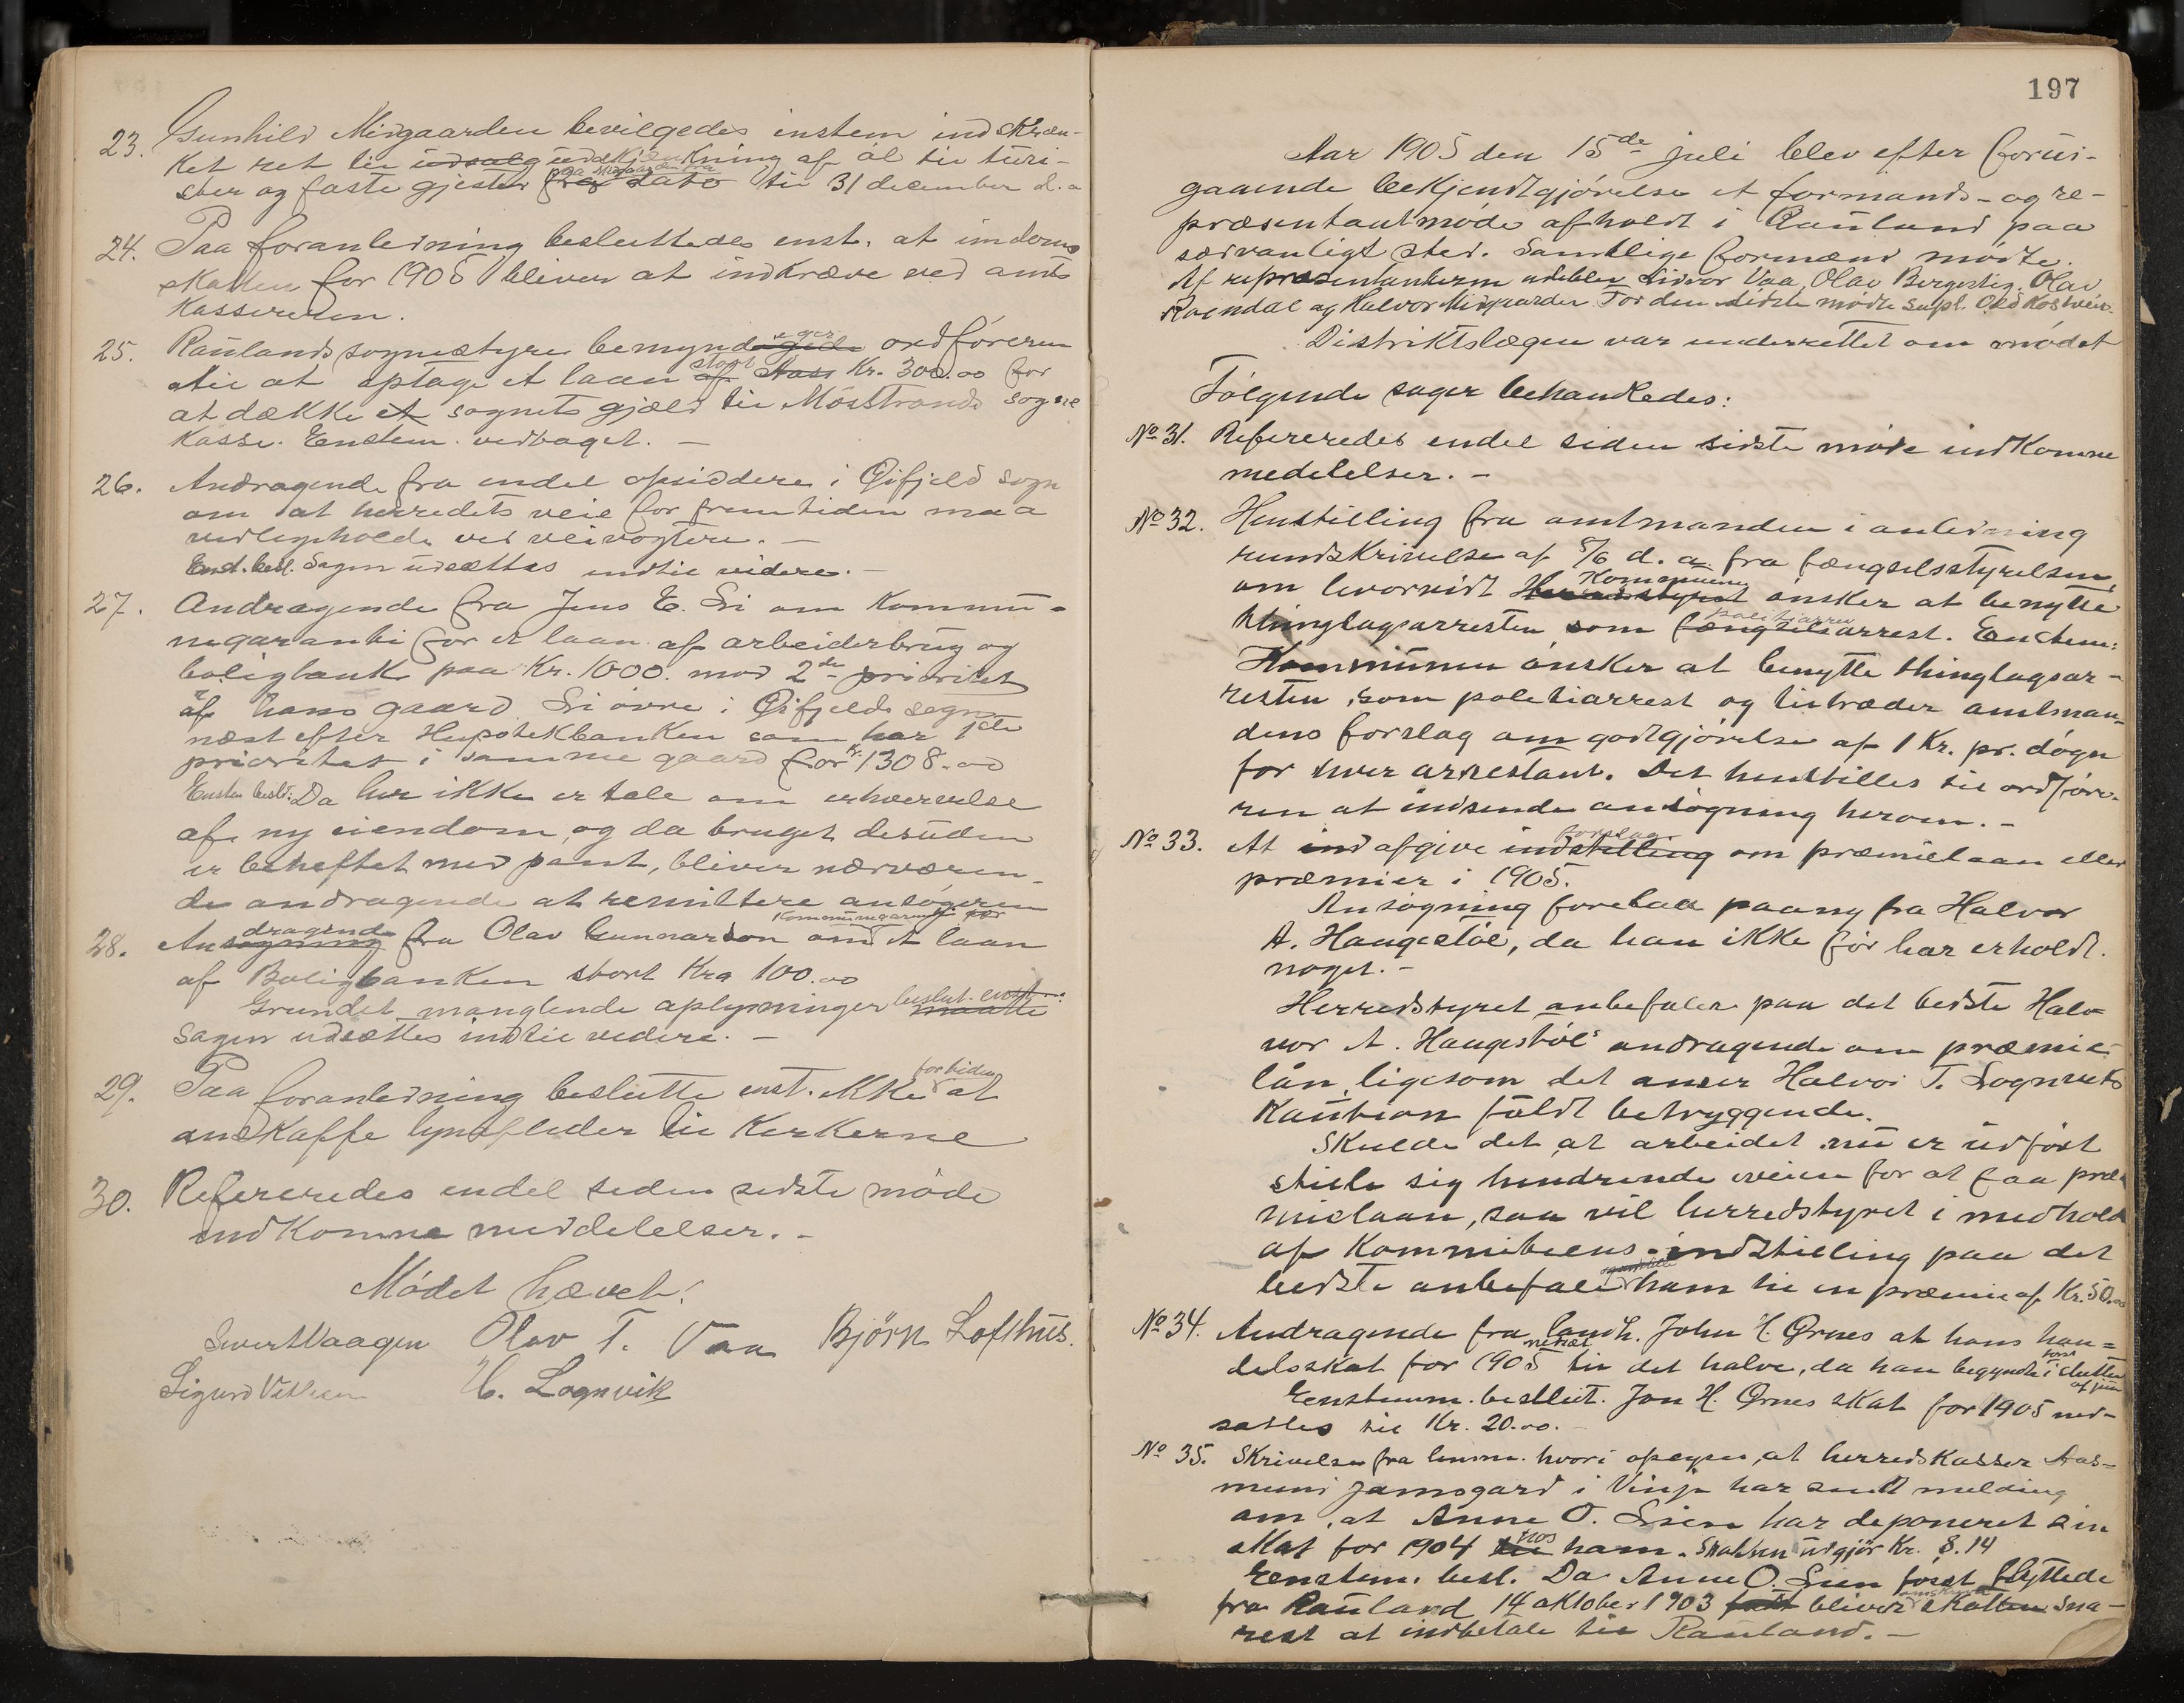 23. Gunhild Midgaarden bevilgedes enstem indskræn-
ket ret til udsalg udskjænkning af øl til turi-
ster og faste gjester fra paa Midgaarden fra dato til 31 december d. a
24. Paa foranledning besluttedes enst. at eiendoms
skatten for 1905 bliver at indkræve ved amts
kassereren.
25. Raulands sognestyre bemyndiger ordføreren
til at optage et laan stort Kr. 300.00 for
at dække et sognets gjæld til Møsstrands sogne
kasse. Enstem. vedtaget. —
26. Andragende fra endel opsiddere i Øifjeld sogn
om at herredets veie for fremtiden maa
vedlegeholdes ved veivogtere. —
Enst. besl. Sagen udsættes indtil videre. —
27. Andragende fra Jens E. Li om kommu-
negaranti for et laan af arbeiderbrug og
boligbank paa Kr. 1000. mod 2de prioritet
af hans gaard Li øvre i Øifjelds sogn
næst efter Hypotekbanken som har 1ste
prioritet i samme gaard for Kr. 1308.00
Enstem besl: Da her ikke er tale om erhvervelse
af ny eiendom og da bruget desuden
er beheftet med pant, bliver nærværen-
de andragende at remittere ansøgeren
28. Andragende fra Olav Gunnarson om kommunegaranti for et laan
af Boligbanken stort Kra 100.00
Grundet manglende oplysninger beslut. enst:
sagen udsættes indtil videre. —
29. Paa foranledning beslutte enst. ikke fortiden at
anskaffe lynafleder til kirkerne
30. Refereredes endel siden sidste møde
indkomne meddelelser. —
Mødet hævet!
Sivert Vaagen Olav T. Vaa Bjørn Lofthus.
Sigurd H. Lognvik
197
Aar 1905 den 15de juli blev efter foruð-
gaaende bekjendtgjørelse et formands- og re-
præsentantmøde afholdt i Rauland paa
sædvanligt sted. Samtlige formænd mødte.
Af repræsentanterne udeblev Sidvor Vaa, Olav Bergestig, Olav
Roendal og Halvor Midgaarden For den sidste mødte supl. O. Kostveit.
Distriktslægen var underrettet om mødet
Følgende sager behandledes:
No 31. Refereredes endel siden sidste møde indkomne
medelelser. —
No 32. Henstilling fra amtmanden i anledning
rundskrivelse af 5/6 d. a. fra fængselsstyrelsen,
om hvorvidt Herredstyret Kommunen ønsker at benytte
thinglagsarresten som fængselsarrest politiarrest. Enstem:
Kommunen ønsker at benytte thinglagsar-
resten som politiarrest og tiltræder amtman-
dens forslag om godtgjørelse af 1 Kr. pr. døgn
for hver arrestant. Det henstilles til ordføre-
ren at indsende ansøgning herom. —
No 33. At ind afgive indstilling forslag om præmielaan eller
præmier i 1905.
Ansøgning foretaa paany fra Halvor
A. Haugestøl, da han ikke før har erholdt.
noget. —
Herredstyret anbefaler paa det bedste Hal-
vor A. Haugestøls andragende om præmie-
lån, ligesom det anser Halvor T. Lognviks
kaution fuldt betryggende.
Skulde det at arbeidet nu er udført
stille sig hindrende iveien for at faa præ
mielaan, saa vil herredstyret i medhold
af kommiteens indstilling paa det
bedste anbefale ham til en præmie af Kr. 50.00
No 34. Andragende fra landh. John H. Ørnes at hans han-
delsskat for 1905 nedsæt til det halve, da han begyndte først i slutten
af juni
Enstemm. beslut. Jon H. Ørnes skat for 1905 ned-
sættes til Kr. 20.00. —
No 35. Skrivelse fra lensm. hvori oplyses, at herredskasser Aas-
mund Jamsgard i Vinje har sendt melding
om, at Anne O. Lien har deponeret sin
skat for 1904 til hos ham. Skatten udgjør Kr. 8.14
Enstem. besl. Da Anne O. Lien først flyttede
fra Rauland 14 oktober 1903 bliver skatten sna-
rest at indbetale til Rauland. —